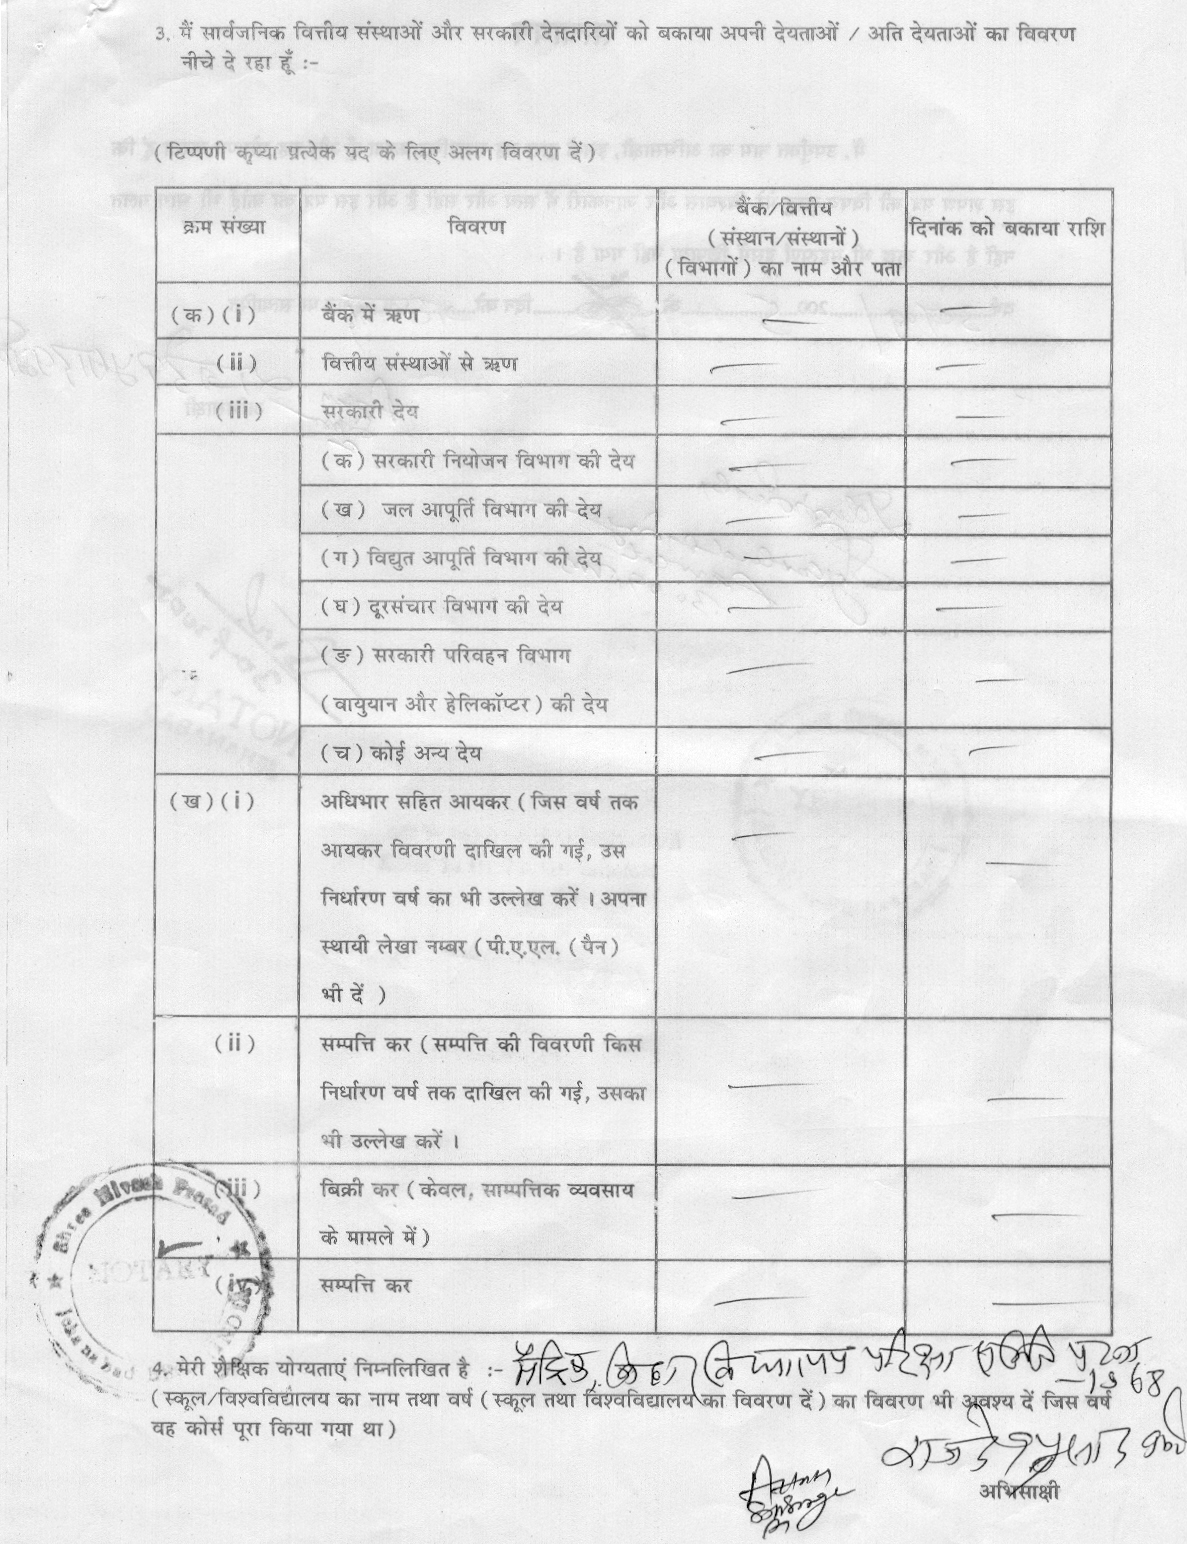 3. मैं सार्वजनिक वित्तीय संस्थाओं और सरकारी देनदारियों को बकाया अपनी देयताओं / अति देयताओं का विवरण
नीचे दे रहा हूँ :-
(टिप्पणी कृप्या प्रत्येक मद के लिए अलग विवरण दें)
क्रम संख्या विवरण बैंक/वित्तीय (संस्थान/संस्थानों) (विभागों) का नाम और पता दिनांक को बकाया राशि
(क)(i) बैंक में ऋण — —
(ii) वित्तीय संस्थाओं से ऋण — —
(iii) सरकारी देय — —
(क) सरकारी नियोजन विभाग की देय — —
(ख) जल आपूर्ति विभाग की देय — —
(ग) विद्युत आपूर्ति विभाग की देय — —
(घ) दूरसंचार विभाग की देय — —
(ङ) सरकारी परिवहन विभाग — —
(वायुयान और हेलिकॉप्टर) की देय
(च) कोई अन्य देय — —
(ख)(i) अधिभार सहित आयकर (जिस वर्ष तक
आयकर विवरणी दाखिल की गई, उस — —
निर्धारण वर्ष का भी उल्लेख करें । अपना
स्थायी लेखा नम्बर (पी.ए.एल. (पैन)
भी दें )
(ii) सम्पत्ति कर (सम्पत्ति की विवरणी किस
निर्धारण वर्ष तक दाखिल की गई, उसका — —
भी उल्लेख करें ।
(iii) बिक्री कर (केवल, साम्पत्तिक व्यवसाय — —
के मामले में)
(iv) सम्पत्ति कर — —
Shree Nivash Prasad
4. मेरी शैक्षिक योग्यताएं निम्नलिखित है :- मैट्रिक, बिहार विद्यालय परीक्षा समिति पटना
-1968
(स्कूल/विश्वविद्यालय का नाम तथा वर्ष (स्कूल तथा विश्वविद्यालय का विवरण दें) का विवरण भी अवश्य दें जिस वर्ष
वह कोर्स पूरा किया गया था)
अभिसाक्षी